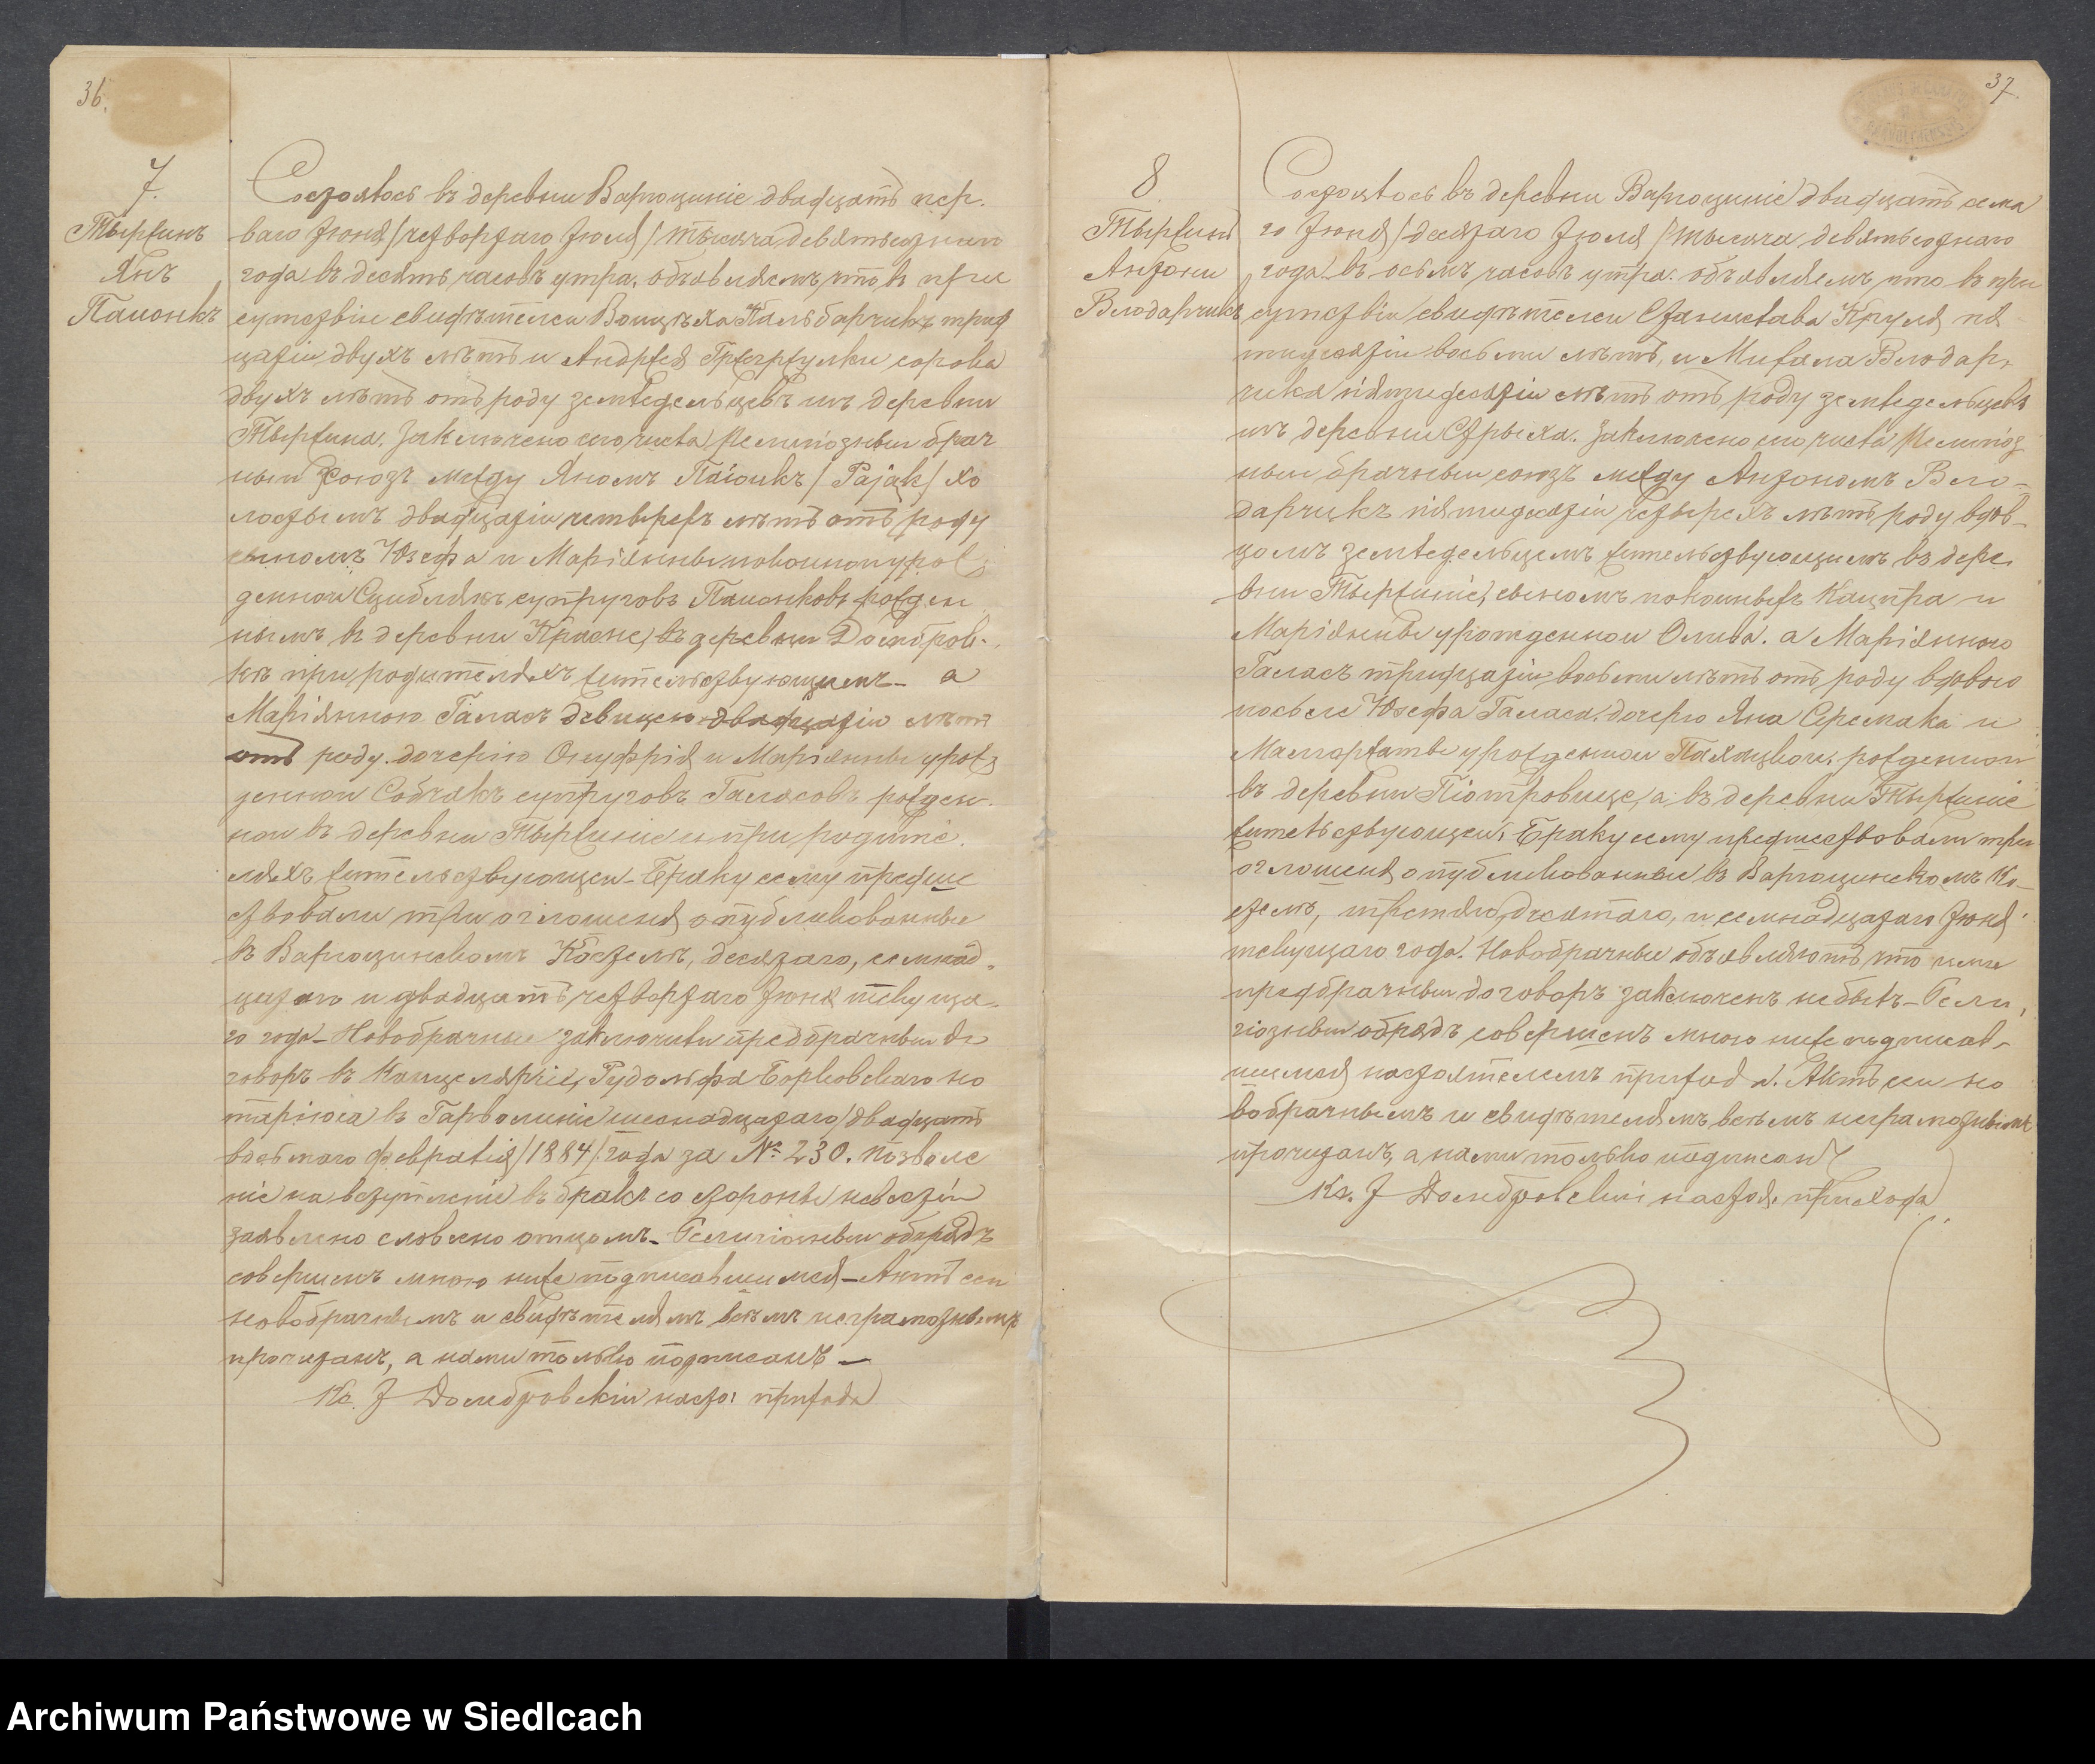 36.
7.
Тыржинъ
Янъ
Паіонкъ
Состоялось въ деревни Варгоциніе двадцать пер-
ваго Іюня/четвортаго Іюля/тысяча девятьсотнаго
года въ десять часовъ утра. Объявляемъ, что въ при
сутствіи свидѣтелеи Воицѣха Пальбарчикъ трид
цати двухъ лѣтъ и Андржея Гржегржулки сорока
двухъ лѣтъ отъ роду земледельцевъ изъ деревни
Тыржина. Заключено сего числа религіозныи брач
ныи союзъ между Яномъ Паіонкъ /Pająk/ хо
лостымъ двадцати четырехъ лѣтъ отъ роду
сыномъ Юзефа и Маріянны покоинои урож
деннои Сциблякъ супруговъ Паіонковъ рожден
нымъ въ деревни Красне, въ деревни Домбров-
кѣ при родителяхъ жительствующимъ - а
Маріянною Галасъ девицею двадцати лѣтъ
отъ роду. дочерію Онуфрія и Маріянны урож
деннои Собчакъ супруговъ Галасовъ рожден-
нои въ деревни Тыржиніе и при родите-
ляхъ жительствующеи - Браку сему предше
ствовали три оглошенія опубликованные
въ Варгоцинскомъ Костелѣ, десятаго, семнад-
цатаго и двадцать четвортаго Іюня текуща-
го года - Новобрачные заключили предбрачныи до
говоръ въ Канцеляріи, Рудольфа Борковскаго но
таріюса въ Гарволиніе шеснадцатаго/двадцать
восьмаго февраля/1884/. года за № 230. Позволе
ніе на вступленіе въ бракъ со стороны невѣсти
заявлено словесно отцомъ - Религіозныи обрядъ
совершенъ мною ниже подписавшимся - Актъ сеи
новобрачнымъ и свидѣтелямъ всѣмъ неграмотнымъ
прочитанъ, а нами только подписанъ -
Кс. J Домбровскіи насто: прихода
37.
8
Тыржинъ
Антони
Влодарчикъ
Состоялось въ деревни Варгоциніе двадцать седма
го Іюня/десятаго Іюля/тысяча девятьсотнаго
года въ осьмъ часовъ утра. объявляемъ что въ при
сутствіи свидѣтелеи Станислава Круля пя
тидесяти восьми лѣтъ, и Михала Влодар-
чика пятидесяти лѣтъ отъ роду земледельцевъ
изъ деревни Стрыха. Заключено сего числа религіоз
ныи брачныи союзъ между Антономъ Вло-
дарчикъ пятидесяти четырехъ лѣтъ роду вдов-
цомъ земледельцемъ жительствующимъ въ дере-
вни Тыржиніе, сыномъ покоиныхъ Кацпра и
Маріянны урожденнои Олива. а Маріянною
Галасъ тридцати восьми лѣтъ отъ роду вдовою
послѣ Юзефа Галаса. дочерю Яна Серемака и
Малгоржаты урожденнои рожденнои
въ деревни Піотровице, а въ деревни Тыржиніе
жительствующеи, Браку сему предшествовали три
оглошенія опубликованные въ Варгоцинскомъ Ко-
стелѣ, третяго, десятаго, и семнадцатаго Іюня
текущаго года. Новобрачные объявляютъ что ими
предбрачныи договоръ заключенъ небылъ - Рели,
гіозныи обрядъ совершенъ мною ниже подписав-
шимся настоятелемъ прихода. Актъ сеи но
вобрачнымъ и свидѣтелямъ всѣмъ неграмотнымъ
прочитанъ, а нами только подписанъ
Кс. J Домбровскіи настоя. прихода
Archiwum Państwowe w Siedlcach